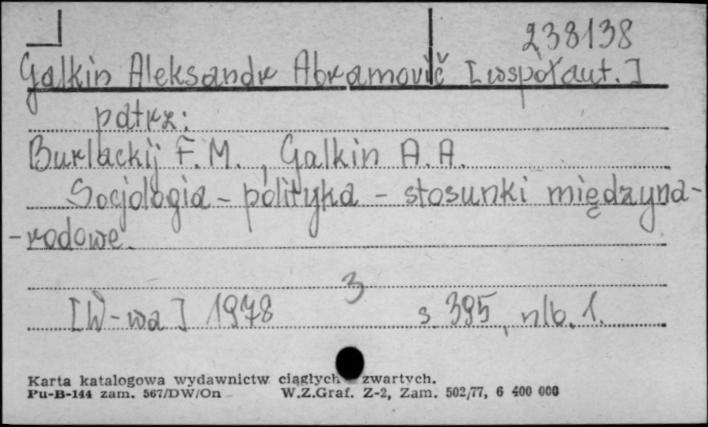 238138
Galkin Aleksandr Abramovič [współaut.]
patrz:
Burlackij F.M., Galkin A.A.
Socjologia - polityka - stosunki międzyna-
-rodowe.
3
[W-wa] 1978 s. 395, nlb. 1.
Karta katalogowa wydawnictw ciągłych zwartych.
Pu-B-144 zam. 567/DW/On W.Z.Graf. Z-2, Zam. 502/77, 6 400 000